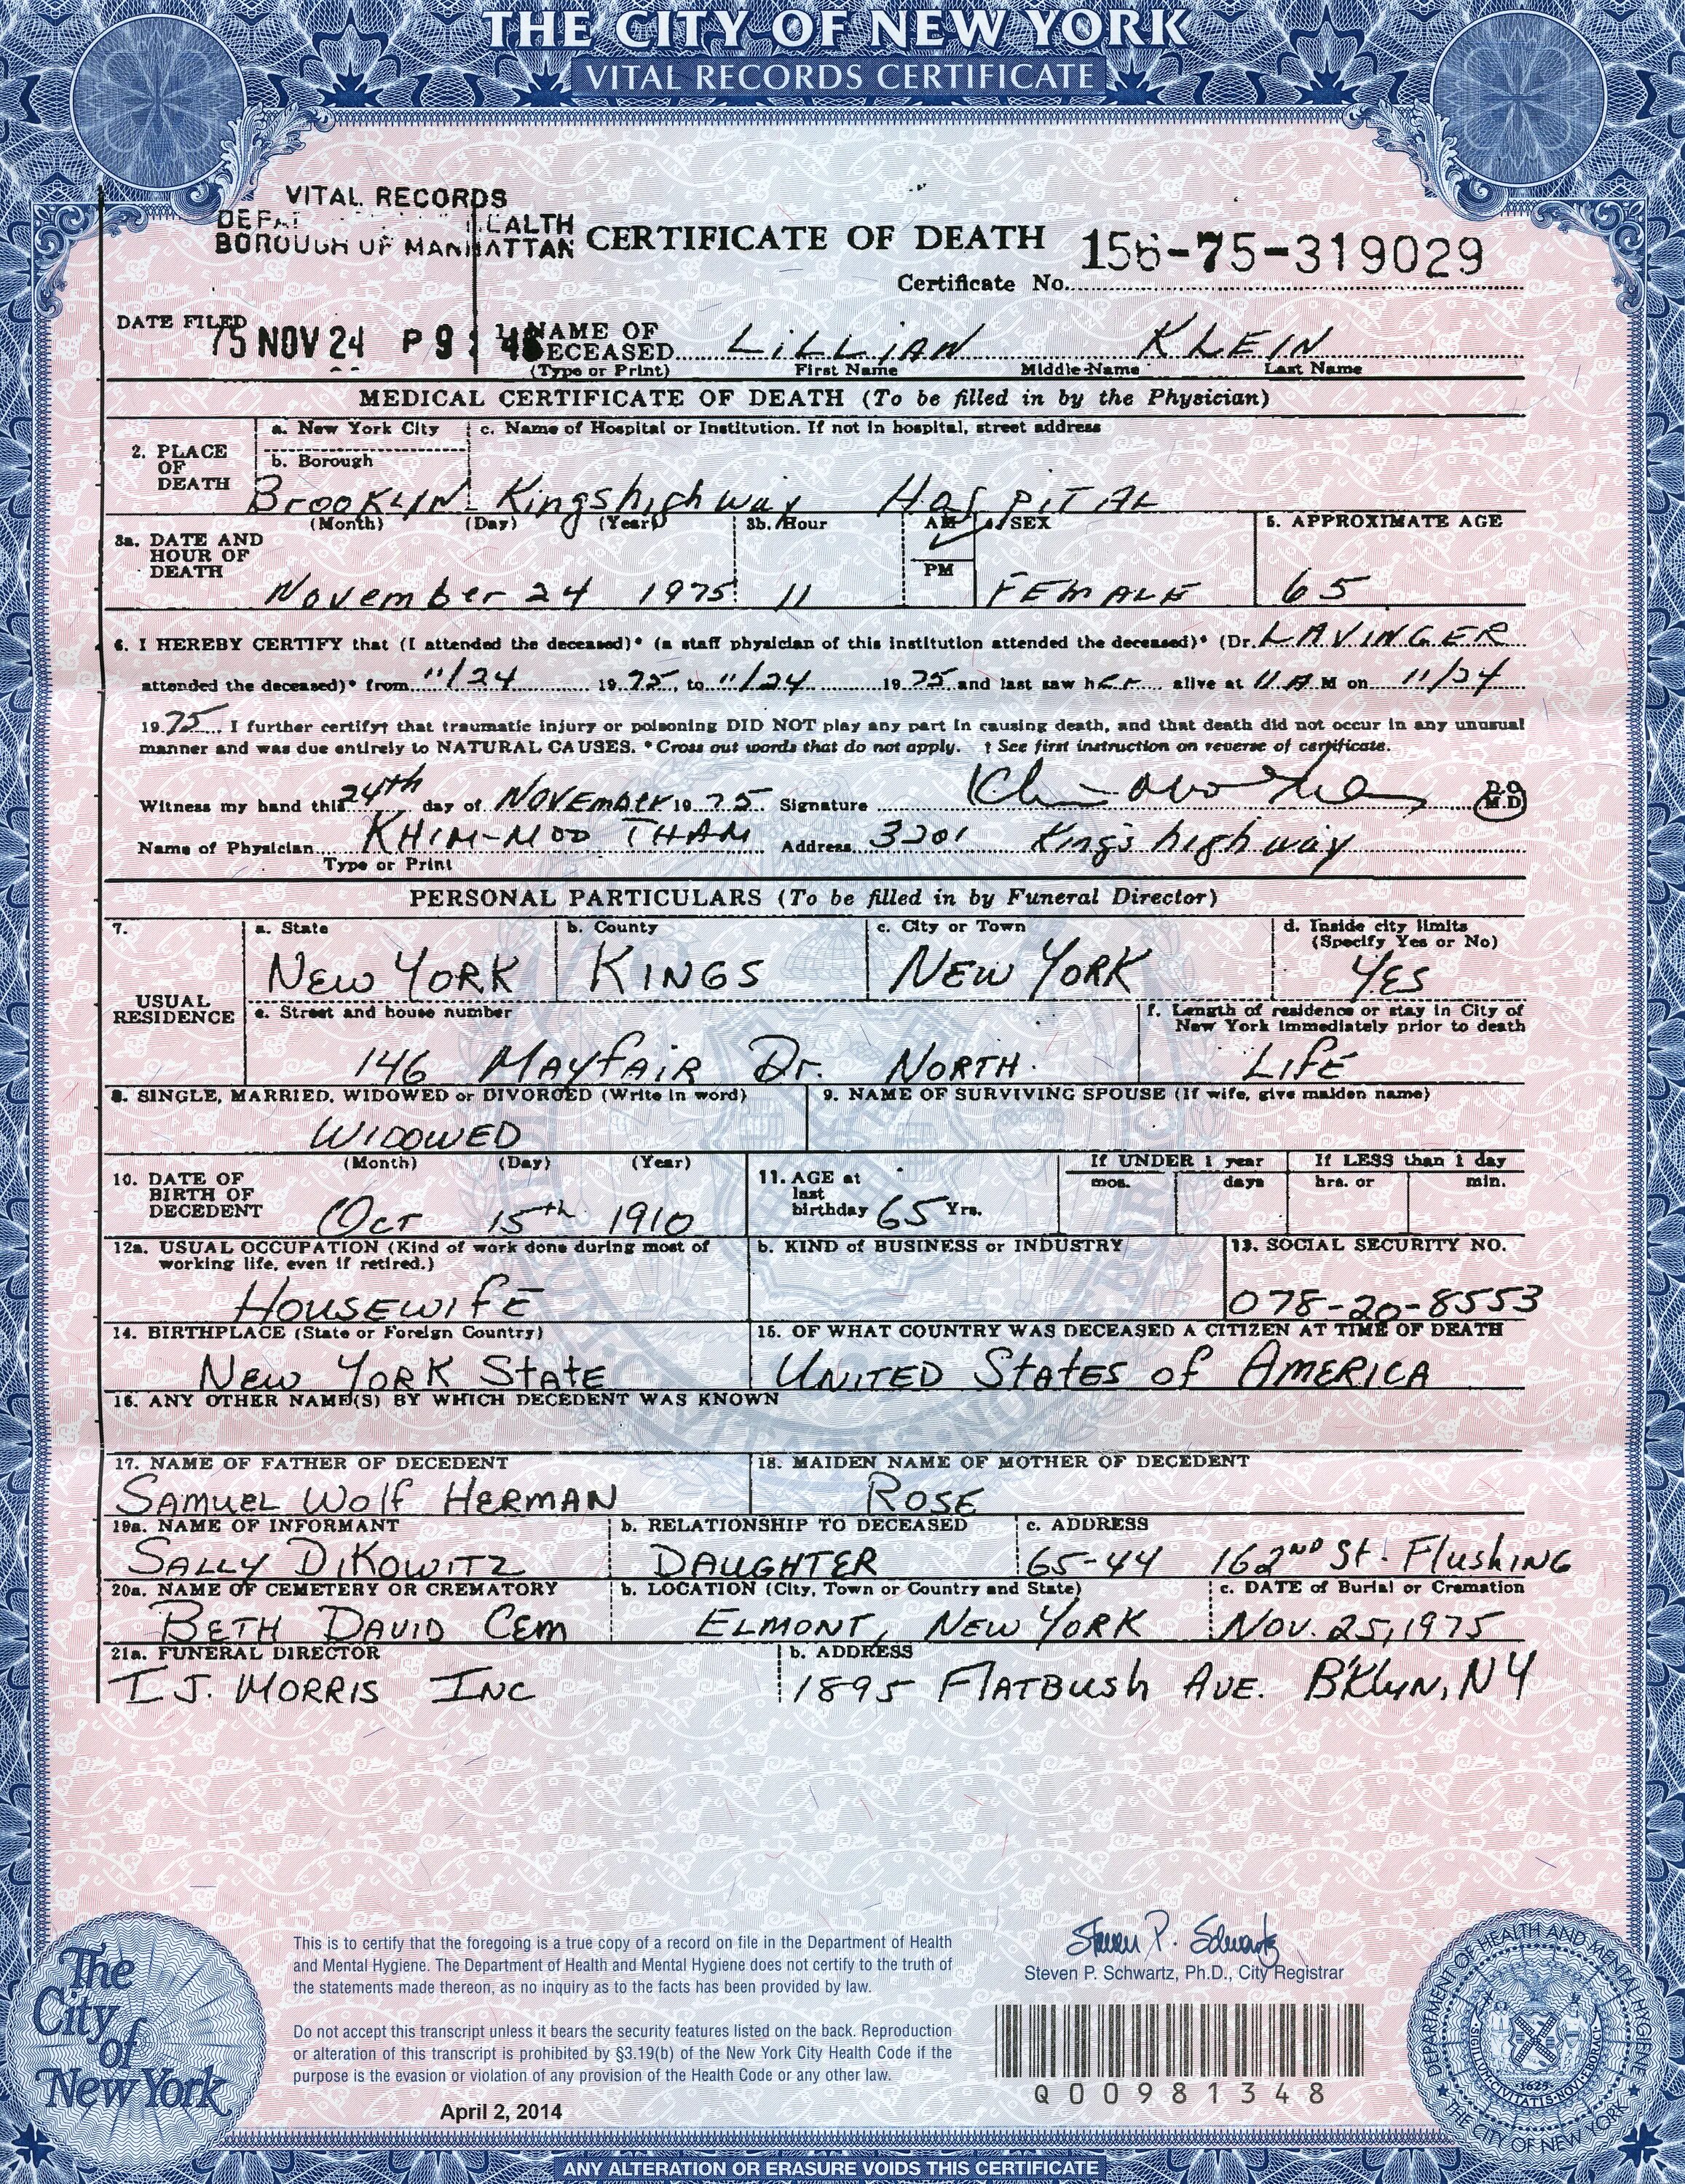 THE CITY OF NEW YORK
VITAL RECORDS CERTIFICATE
VITAL RECORDS
BOROUGH OF MANHATTAN
CERTIFICATE OF DEATH
156-75-319029
Certificate No.
DATE FILED
75 NOV 24 P 9: 46
1. NAME OF DECEASED LILLIAN KLEIN
(Type or Print) First Name Middle Name Last Name
MEDICAL CERTIFICATE OF DEATH (To be filled in by the Physician)
2. PLACE OF DEATH
a. New York City
b. Borough
BROOKLYN
c. Name of Hospital or Institution. If not in hospital, street address
Kingshighway HOSPITAL
3a. DATE AND HOUR OF DEATH
(Month) (Day) (Year)
November 24 1975
3b. Hour
11
AM ✓
PM
4. SEX
FEMALE
5. APPROXIMATE AGE
65
6. I HEREBY CERTIFY that (I attended the deceased)* (a staff physician of this institution attended the deceased)* (Dr. LAVINGER
attended the deceased)* from 11/24 1975, to 11/24 1975 and last saw her alive at 11 A M on 11/24
1975. I further certify† that traumatic injury or poisoning DID NOT play any part in causing death, and that death did not occur in any unusual
manner and was due entirely to NATURAL CAUSES. *Cross out words that do not apply. † See first instruction on reverse of certificate.
Witness my hand this 24th day of NOVEMBER 1975 Signature D.O. M.D
Name of Physician KHIM-MOO THAM Address 3201 King's highway
Type or Print
PERSONAL PARTICULARS (To be filled in by Funeral Director)
7. USUAL RESIDENCE
a. State
NEW YORK
b. County
KINGS
c. City or Town
NEW YORK
d. Inside city limits (Specify Yes or No)
YES
e. Street and house number
146 MAYFAIR Dr. NORTH.
f. Length of residence or stay in City of New York immediately prior to death
LIFE
8. SINGLE, MARRIED, WIDOWED or DIVORCED (Write in word)
WIDOWED
9. NAME OF SURVIVING SPOUSE (If wife, give maiden name)
10. DATE OF BIRTH OF DECEDENT
(Month) (Day) (Year)
OCT 15th 1910
11. AGE at last birthday 65 Yrs.
If UNDER 1 year
mos. days
If LESS than 1 day
hrs. or min.
12a. USUAL OCCUPATION (Kind of work done during most of working life, even if retired.)
HOUSEWIFE
b. KIND of BUSINESS or INDUSTRY
13. SOCIAL SECURITY NO.
078-20-8553
14. BIRTHPLACE (State or Foreign Country)
NEW YORK STATE
15. OF WHAT COUNTRY WAS DECEASED A CITIZEN AT TIME OF DEATH
UNITED STATES of AMERICA
16. ANY OTHER NAME(S) BY WHICH DECEDENT WAS KNOWN
17. NAME OF FATHER OF DECEDENT
SAMUEL WOLF HERMAN
18. MAIDEN NAME OF MOTHER OF DECEDENT
ROSE
19a. NAME OF INFORMANT
SALLY DIKOWITZ
b. RELATIONSHIP TO DECEASED
DAUGHTER
c. ADDRESS
65-44 162ND St. Flushing
20a. NAME OF CEMETERY OR CREMATORY
BETH DAVID CEM
b. LOCATION (City, Town or Country and State)
ELMONT, NEW YORK
c. DATE of Burial or Cremation
NOV. 25, 1975
21a. FUNERAL DIRECTOR
I J. MORRIS INC
b. ADDRESS
1895 FLATBUSH AVE. B'KLYN, NY
This is to certify that the foregoing is a true copy of a record on file in the Department of Health
and Mental Hygiene. The Department of Health and Mental Hygiene does not certify to the truth of
the statements made thereon, as no inquiry as to the facts has been provided by law.
Do not accept this transcript unless it bears the security features listed on the back. Reproduction
or alteration of this transcript is prohibited by §3.19(b) of the New York City Health Code if the
purpose is the evasion or violation of any provision of the Health Code or any other law.
April 2, 2014
Steven P. Schwartz
Steven P. Schwartz, Ph.D., City Registrar
Q00981348
The City of New York
DEPARTMENT OF HEALTH AND MENTAL HYGIENE
THE CITY OF NEW YORK
SIGILLUM CIVITATIS NOVI EBORACI
1625
ANY ALTERATION OR ERASURE VOIDS THIS CERTIFICATE